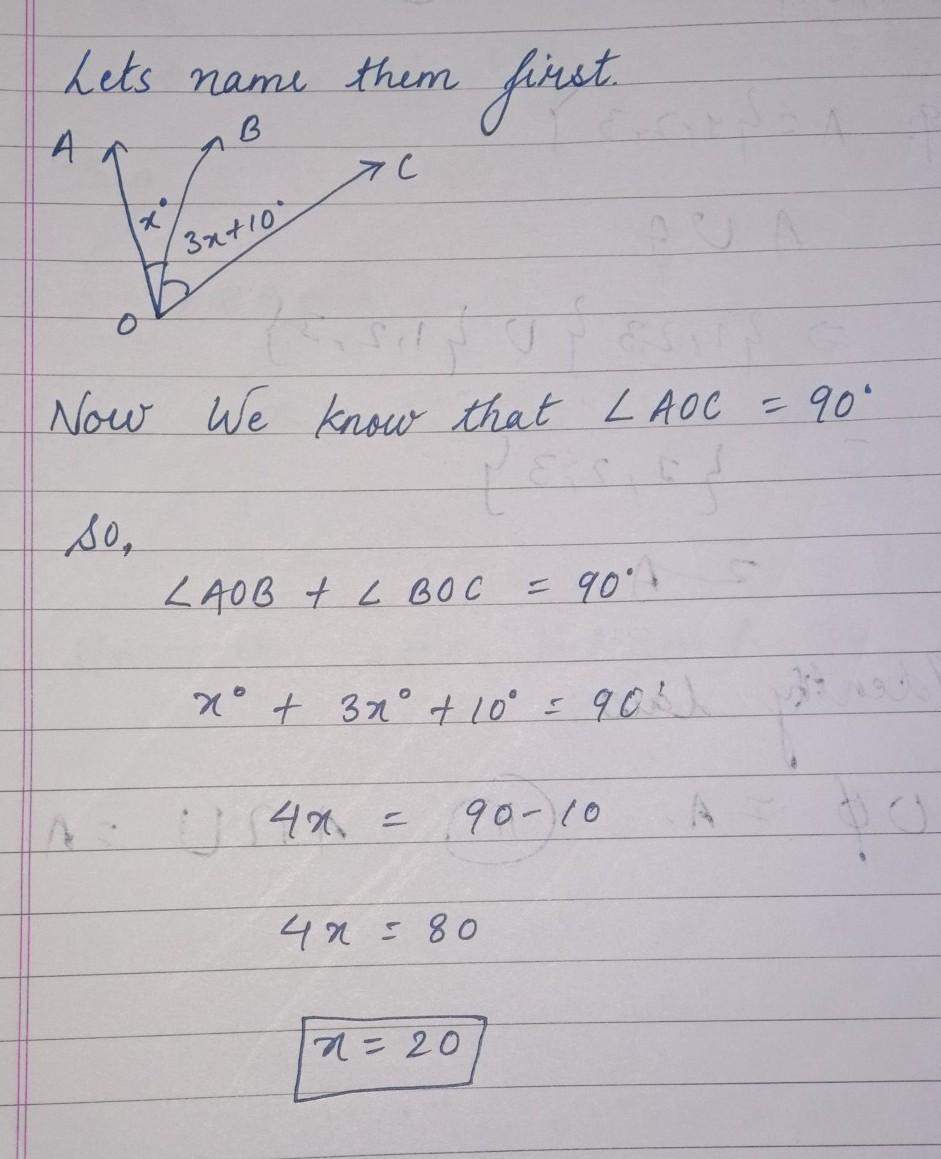 Lets name them first.
A
B
C
x°
3x+10°
O
Now We know that ∠AOC = 90°
So,
∠AOB + ∠BOC = 90°
x° + 3x° + 10° = 90°
4x = 90-10
4x = 80
x = 20